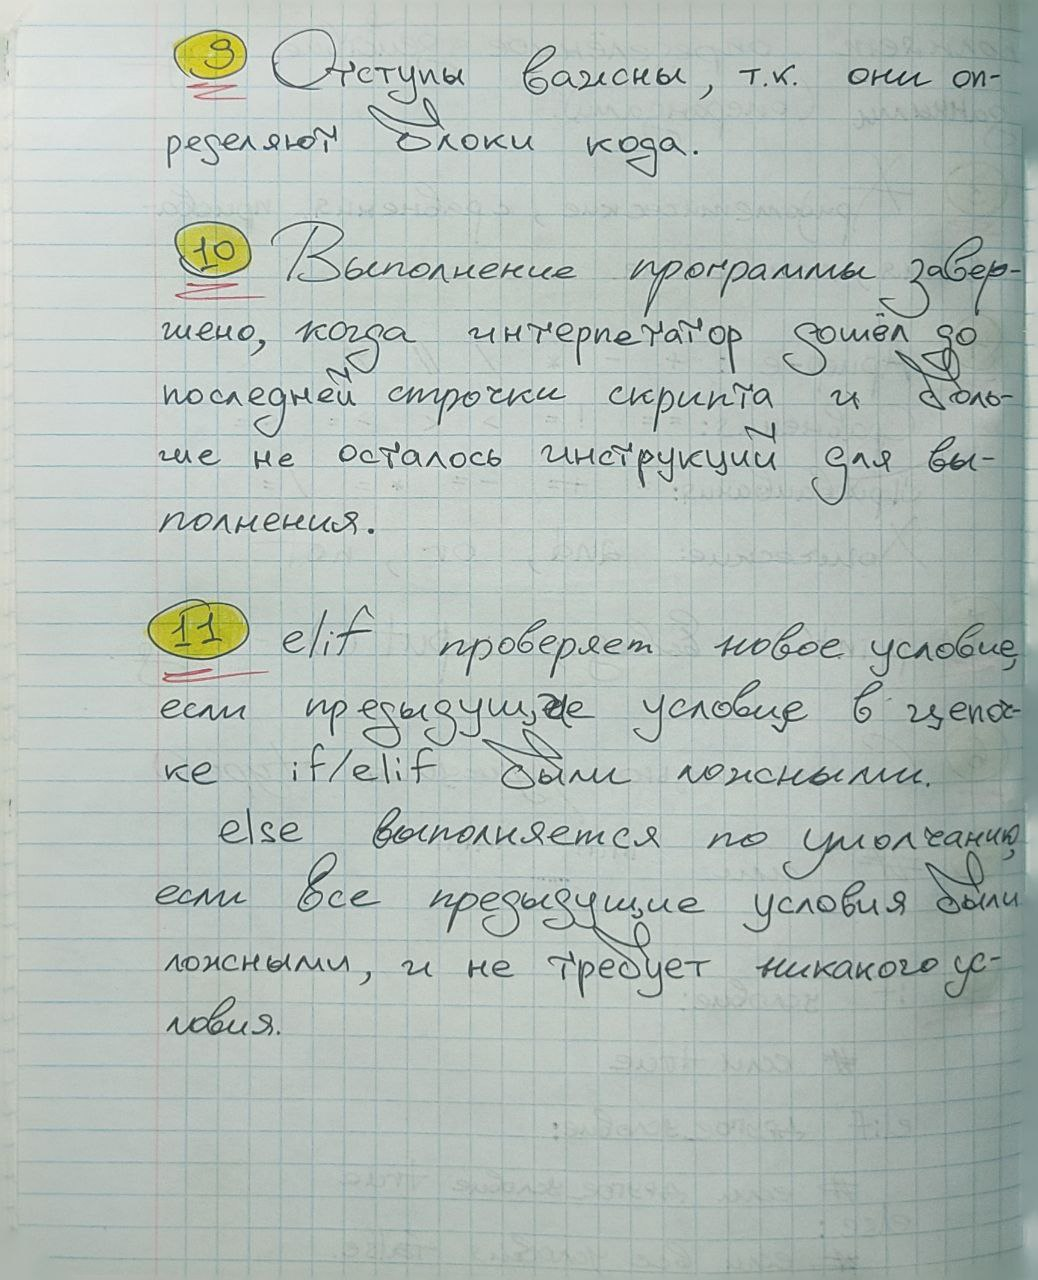 9 Отступы важны, т.к. они оп-
ределяют блоки кода.
10 Выполнение программы завер-
шено, когда интерпетатор дошёл до
последней строчки скрипта и боль-
ше не осталось инструкций для вы-
полнения.
11 elif проверяет новое условие,
если предыдущие условие в цепоч-
ке if/elif были ложными.
else выполняется по умолчанию,
если все предыдущие условия были
ложными, и не требует никакого ус-
ловия.